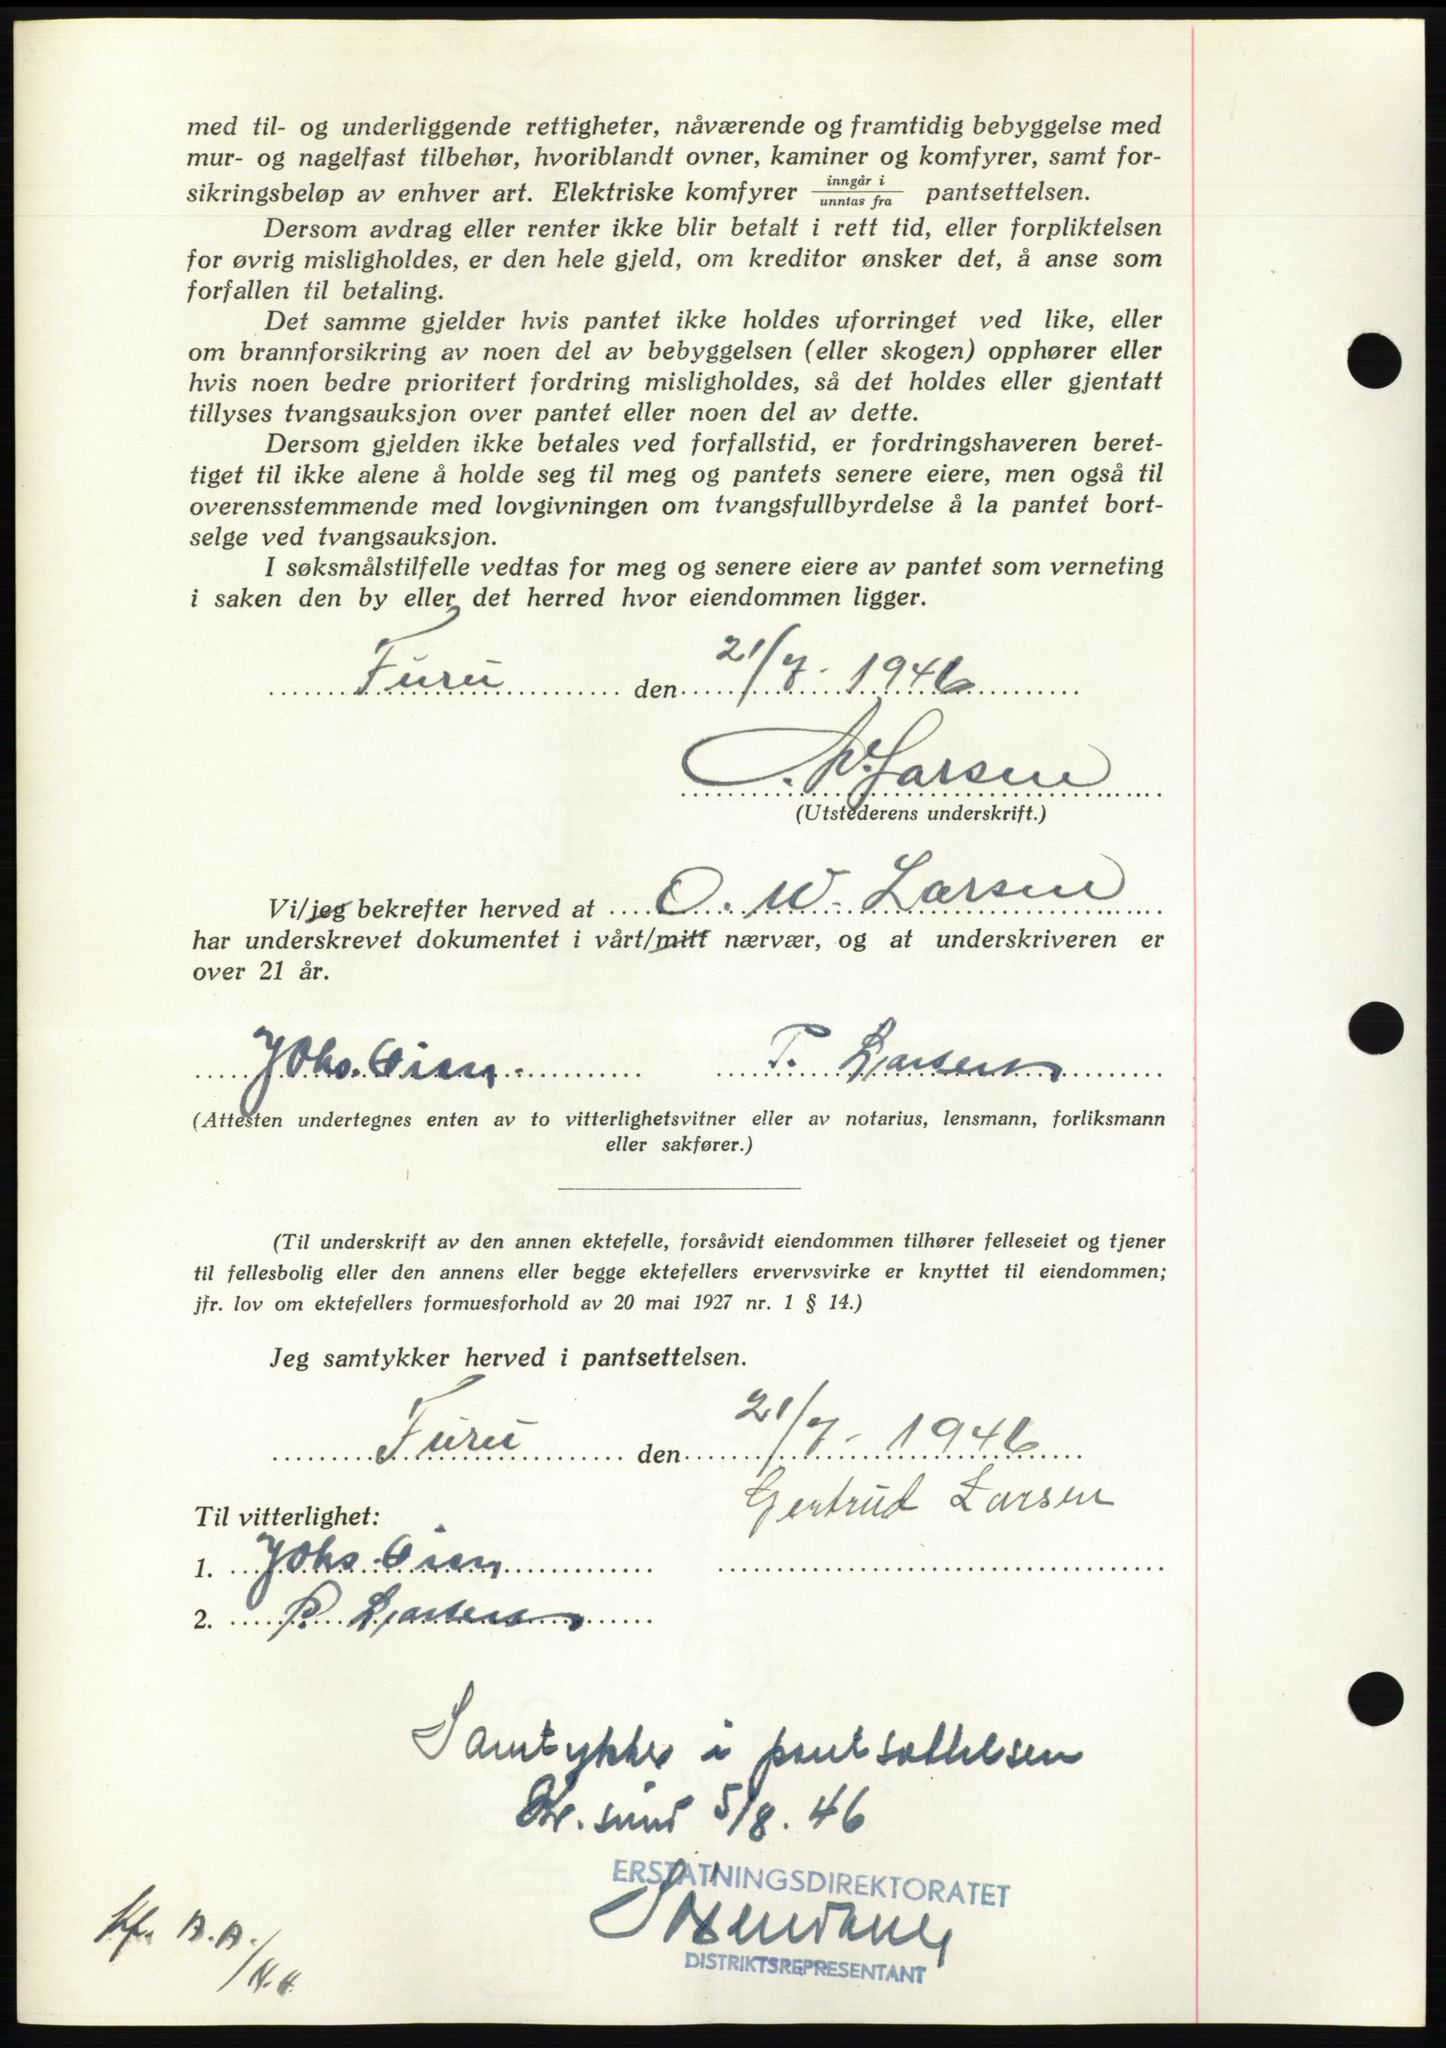 med til- og underliggende rettigheter, nåværende og framtidig bebyggelse med
mur- og nagelfast tilbehør, hvoriblandt ovner, kaminer og komfyrer, samt for-
sikringsbeløp av enhver art. Elektriske komfyrer inngår i / unntas fra pantsettelsen.
Dersom avdrag eller renter ikke blir betalt i rett tid, eller forpliktelsen
for øvrig misligholdes, er den hele gjeld, om kreditor ønsker det, å anse som
forfallen til betaling.
Det samme gjelder hvis pantet ikke holdes uforringet ved like, eller
om brannforsikring av noen del av bebyggelsen (eller skogen) opphører eller
hvis noen bedre prioritert fordring misligholdes, så det holdes eller gjentatt
tillyses tvangsauksjon over pantet eller noen del av dette.
Dersom gjelden ikke betales ved forfallstid, er fordringshaveren beret-
tiget til ikke alene å holde seg til meg og pantets senere eiere, men også til
overensstemmende med lovgivningen om tvangsfullbyrdelse å la pantet bort-
selge ved tvangsauksjon.
I søksmålstilfelle vedtas for meg og senere eiere av pantet som verneting
i saken den by eller det herred hvor eiendommen ligger.
Furu den 21/7. 1946
O. W. Larsen
(Utstederens underskrift.)
Vi/jeg bekrefter herved at O. W. Larsen
har underskrevet dokumentet i vårt/mitt nærvær, og at underskriveren er
over 21 år.
Johs. Oien. P. Larsen
(Attesten undertegnes enten av to vitterlighetsvitner eller av notarius, lensmann, forliksmann
eller sakfører.)
(Til underskrift av den annen ektefelle, forsåvidt eiendommen tilhører felleseiet og tjener
til fellesbolig eller den annens eller begge ektefellers ervervsvirke er knyttet til eiendommen;
jfr. lov om ektefellers formuesforhold av 20 mai 1927 nr. 1 § 14.)
Jeg samtykker herved i pantsettelsen.
Furu den 21/7. 1946
Gertrud Larsen
Til vitterlighet:
1. Johs. Oien
2. P. Larsen
Samtykke i pantsættelsen
Kr. sund 5/8. 46
ERSTATNINGSDIREKTORATET
DISTRIKTSREPRESENTANT
Kf. A.A./N.H.